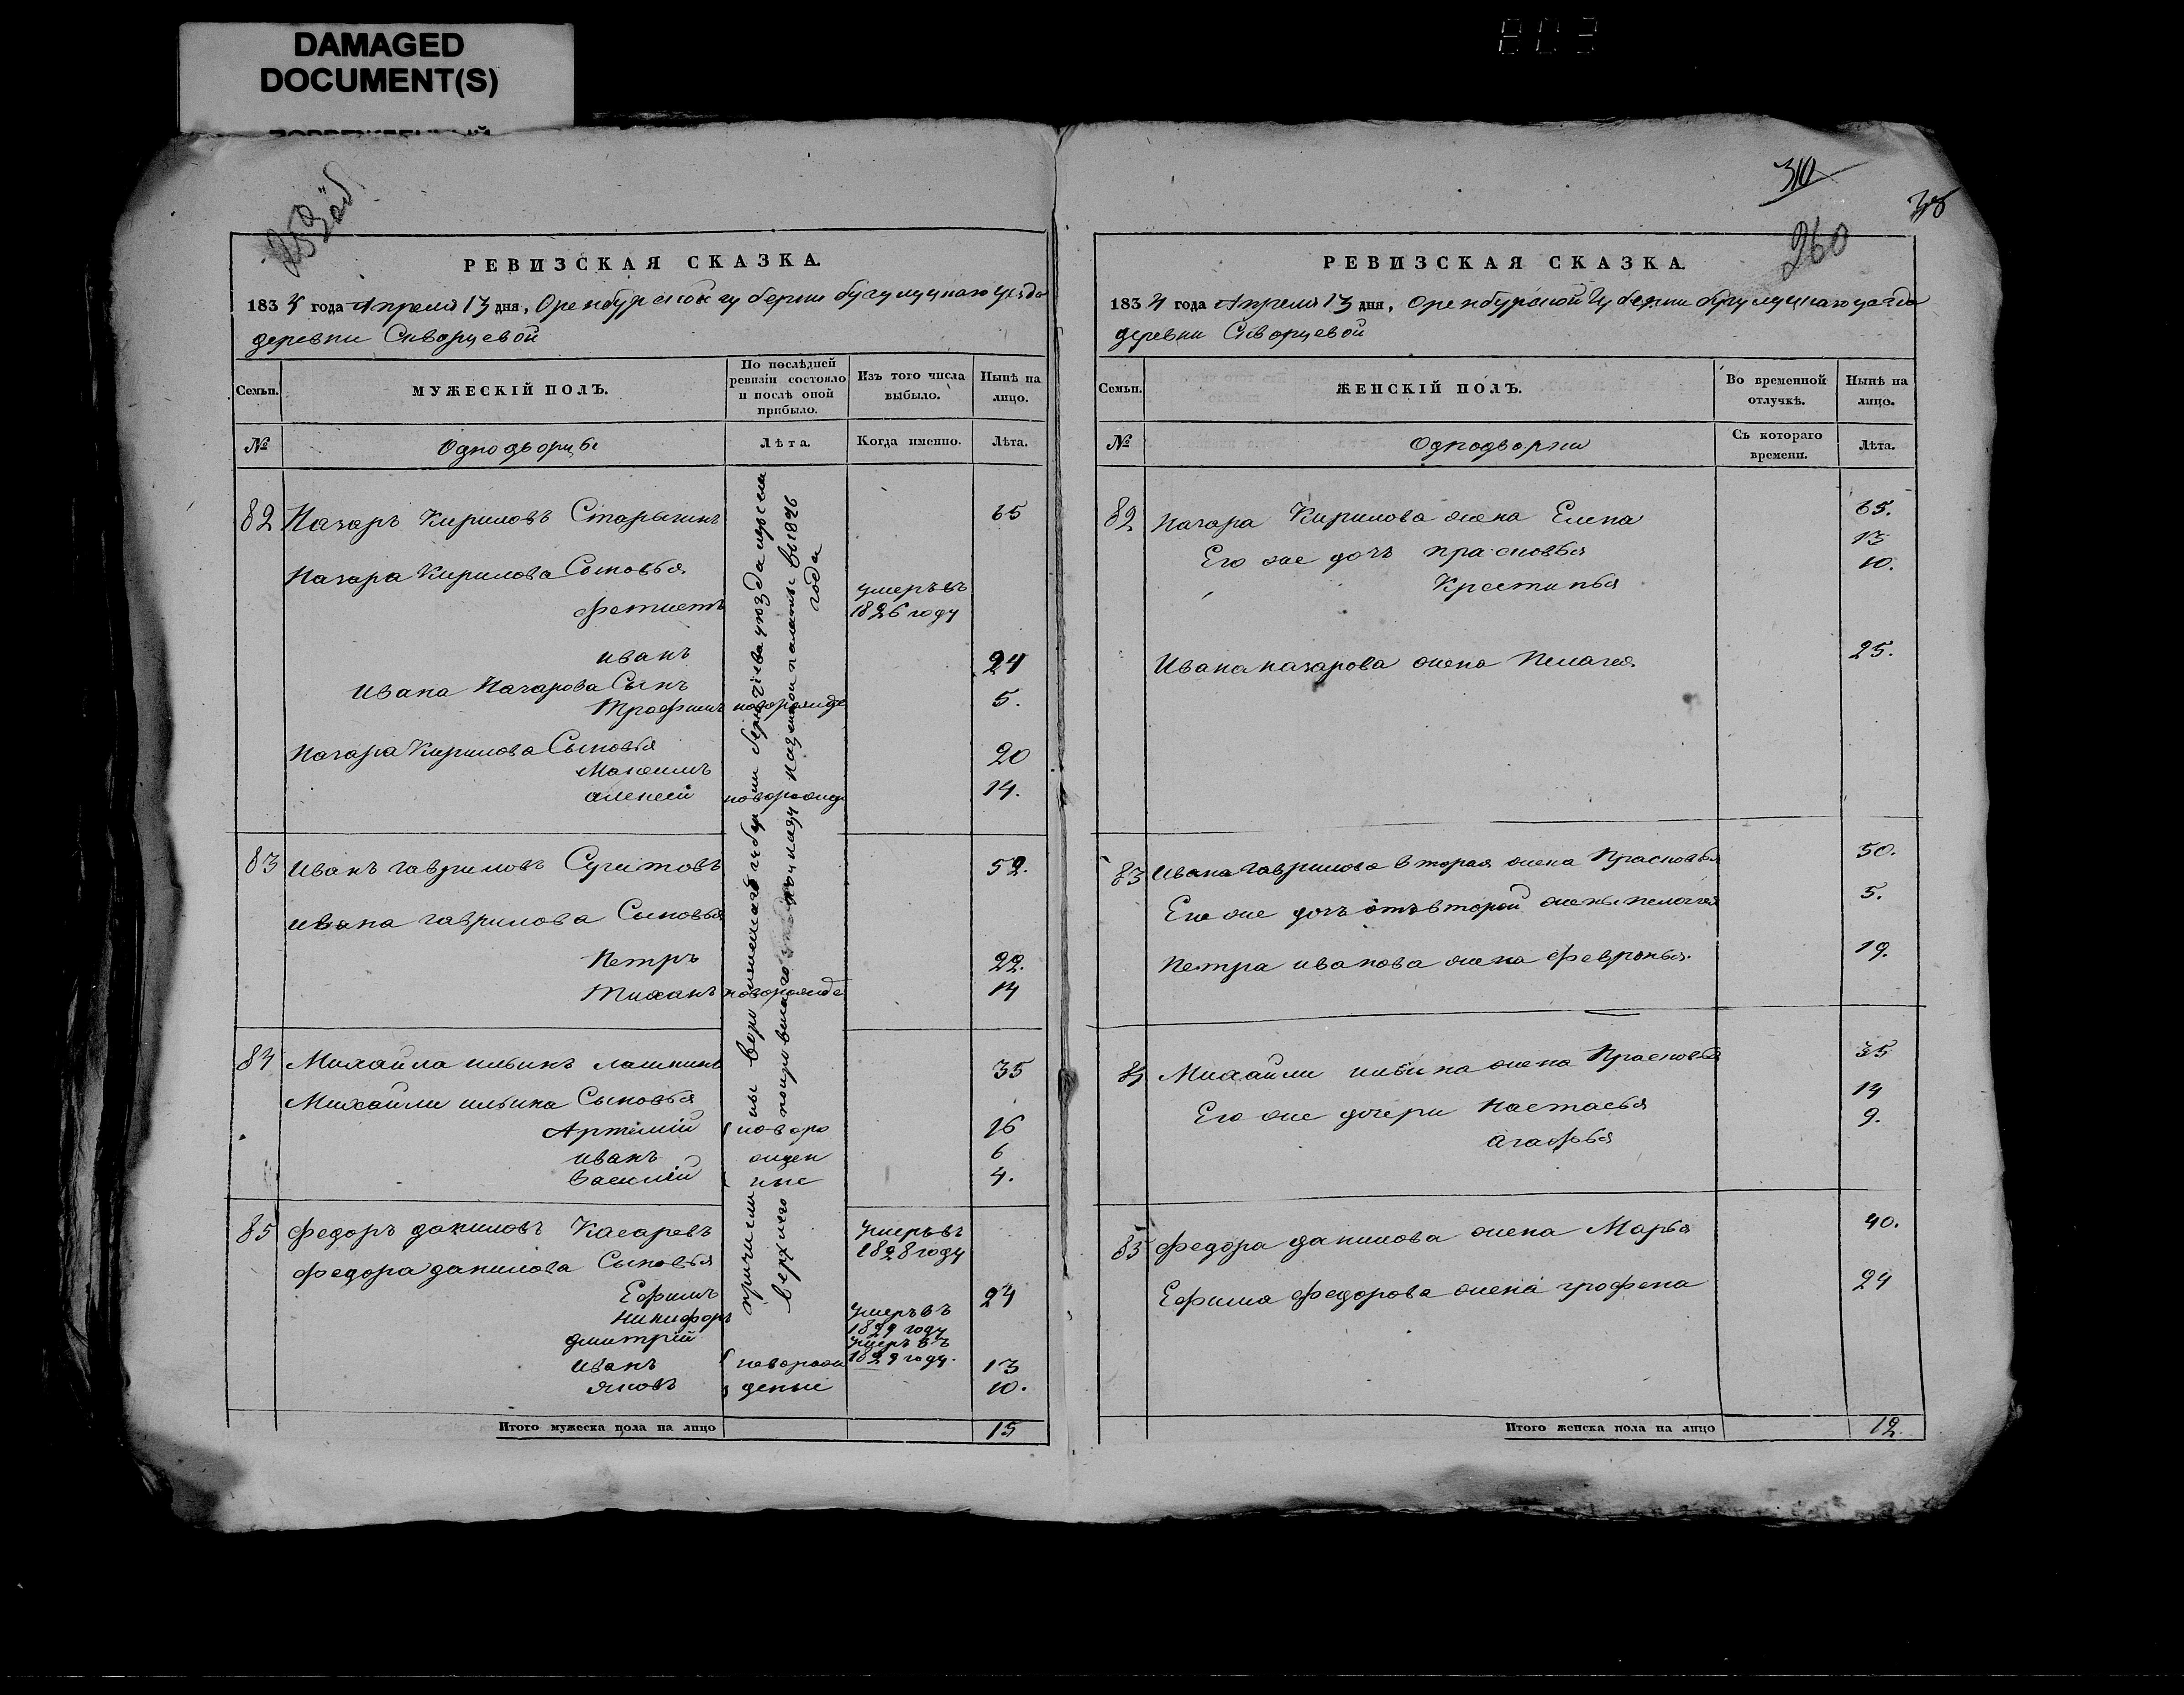 DAMAGED
DOCUMENT(S)
РЕВИЗСКАЯ СКАЗКА.
1834 года Апреля 13 дня, Оренбурской губернии бугулминскаго уезда
деревни Скворцевой
Семьи.
МУЖЕСКІЙ ПОЛЪ.
По послѣдней ревизіи состояло и послѣ оной прибыло.
Изъ того числа выбыло.
Нынѣ на лицо.
№
Однодворцы
Лѣта.
Когда именно.
Лѣта.
82 Назаръ Кириловъ 65
Назара Кирилова Сыновья
Фетистъ умеръ въ 1826 году
иванъ 24
ивана Назарова Сынъ
Трофимъ новорожде 5.
Назара Кирилова Сыновья
Максимъ 20
алексей новорожде 14.
83 иванъ гавриловъ 52.
ивана гаврилова Сыновья
Петръ 22.
Тиханъ новорожде 14
84 Михайла ильинъ 35
Михайли ильина Сыновья
Артемій новоро 16
иванъ жден 6
василій ные 4.
85 федоръ даниловъ Касаревъ умеръ въ 1828 году
федора данилова Сыновья
Ефимъ 24
никифоръ умеръ въ 1829 году
дмитрій умеръ въ 1829 году.
иванъ новорож 13
яковъ деные 10.
Итого мужеска пола на лицо 15
310
260
РЕВИЗСКАЯ СКАЗКА
1834 года Апреля 13 дня, Оренбурской Губернии бугулминскаго уезда
деревни Скворцевой
Семьи.
ЖЕНСКІЙ ПОЛЪ.
Во временной отлучкѣ.
Нынѣ на лицо.
№
Однодворки
Съ котораго времени.
Лѣта.
82 назара Кирилова жена Елена 65.
Его же дочь прасковья 13
Крестинья 10.
Ивана назарова жена Пелагея 25.
83 ивана гаврилова вторая жена Прасковья 50.
Его же дочь отъ второй жены пелагея 5.
Петра иванова жена февронья 19.
84 Михайли ильина жена Прасковья 35
Его же дочери настасья 14
агафья 9.
85 федора данилова жена Марья 40.
Ефима федорова жена грофена 24
Итого женска пола на лицо 12.